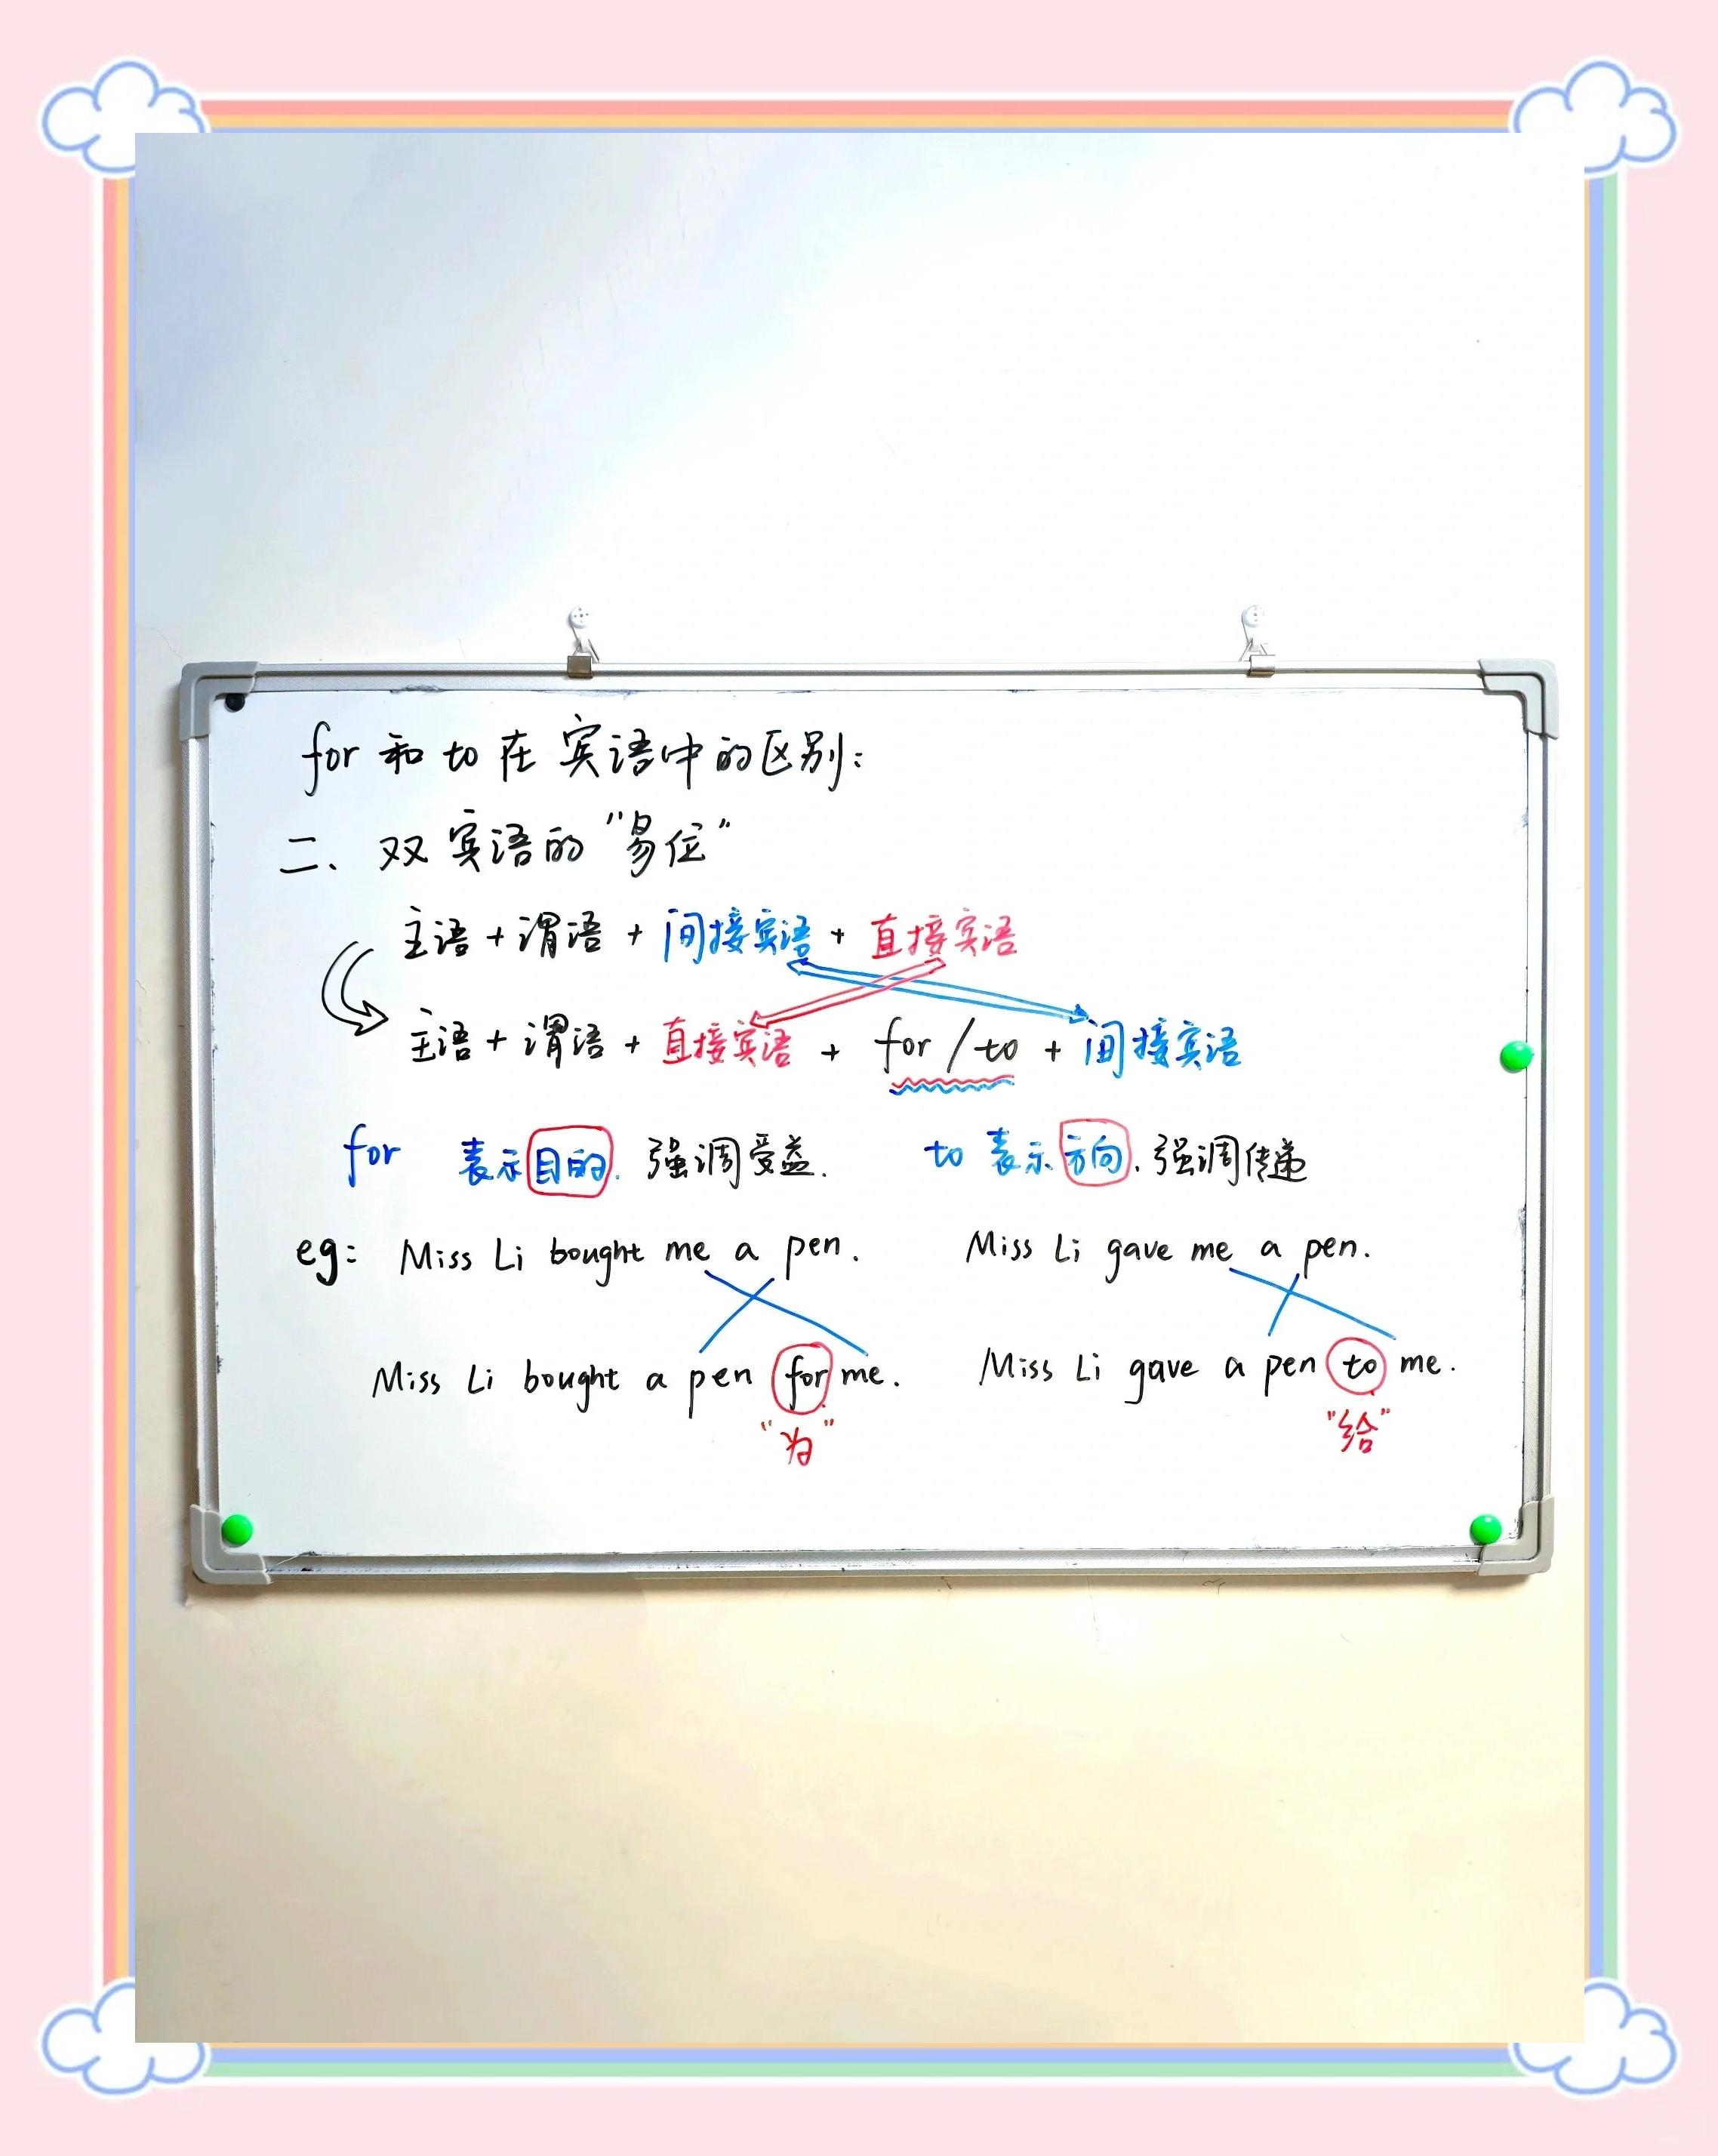 for 和 to 在宾语中的区别:
二、双宾语的"易位"
主语 + 谓语 + 间接宾语 + 直接宾语
主语 + 谓语 + 直接宾语 + for / to + 间接宾语
for 表示目的. 强调受益. to 表示方向. 强调传递
eg: Miss Li bought me a pen. Miss Li gave me a pen.
Miss Li bought a pen for me. Miss Li gave a pen to me.
"为" "给"